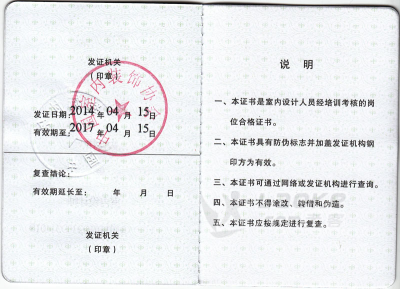 发证机关
（印章）
中国室内装饰协会
发证日期：2014年 04月 15日
有效期至：2017年 04月 15日
复查结论：
有效期延长至： 年 月 日
发证机关
（印章）
说 明
一、本证书是室内设计人员经培训考核的岗
位合格证书。
二、本证书具有防伪标志并加盖发证机构钢
印方为有效。
三、本证书可通过网络或发证机构进行查询。
四、本证书不得涂改、转借和伪造。
五、本证书应按规定进行复查。